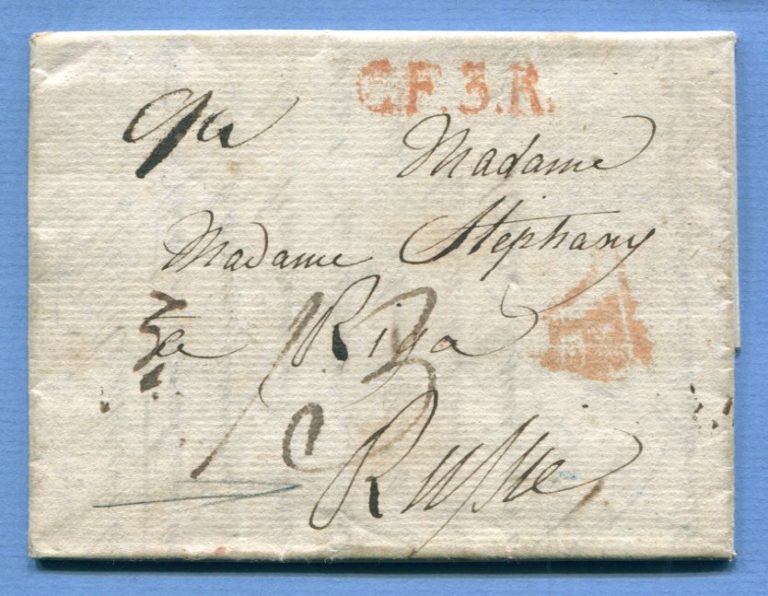 C.F.3.R.
Madame
Madame Stephany
a Riga
Russie